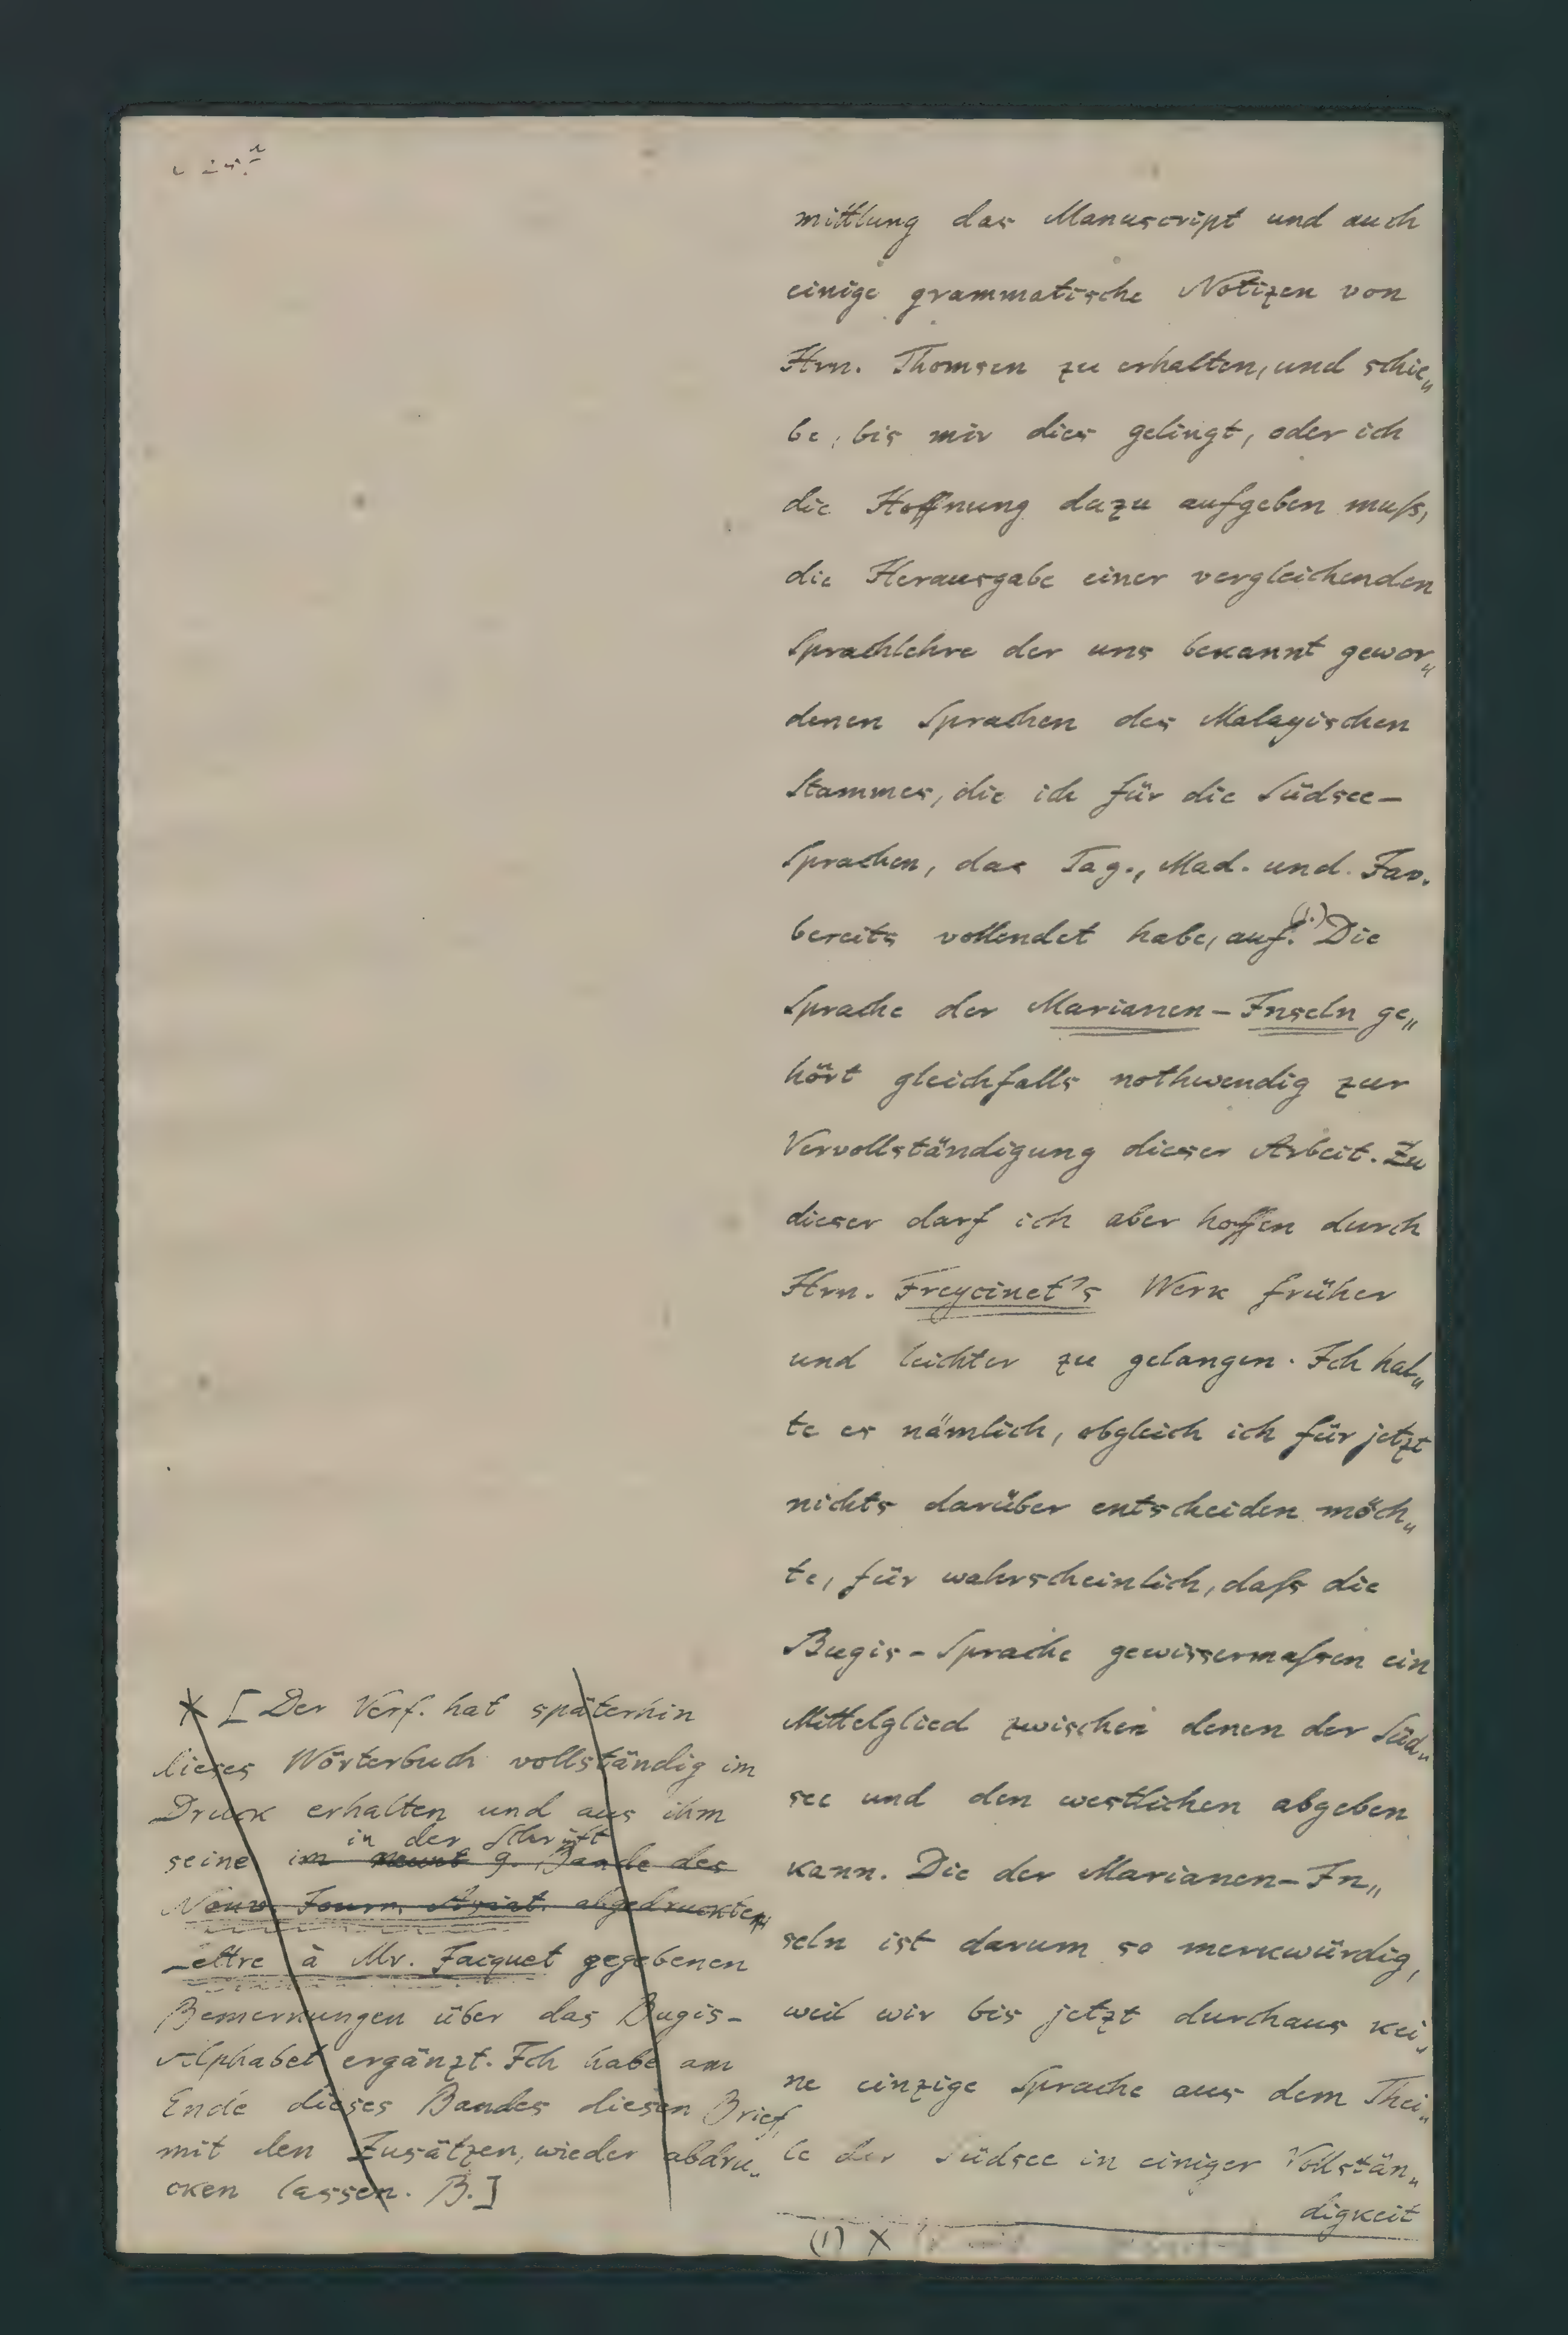 mittlung das Manuscript und auch
einige grammatische Notizen von
Hrn. Thomsen zu erhalten, und schie„
be, bis mir dies gelingt, oder ich
die Hoffnung dazu aufgeben muſs,
die Herausgabe einer vergleichenden
Sprachlehre der uns bekannt gewor„
denen Sprachen des Malayischen
Stammes, die ich für die Südsee-
Sprachen, das Tag., Mad. und Jav.
bereits vollendet habe, auf. (1.) Die
Sprache der Marianen-Inseln ge„
hört gleichfalls nothwendig zur
Vervollständigung dieser Arbeit. Zu
dieser darf ich aber hoffen durch
Hrn. Freycinet's Werk früher
und leichter zu gelangen. Ich hal„
te es nämlich, obgleich ich für jetzt
nichts darüber entscheiden möch„
te, für wahrscheinlich, daſs die
Bugis-Sprache gewissermaſsen ein
Mittelglied zwischen denen der Süd„
see und den westlichen abgeben
kann. Die der Marianen-In„
seln ist darum so merkwürdig,
weil wir bis jetzt durchaus kei„
ne einzige Sprache aus dem Thei„
le der Südsee in einiger Vollstän„
digkeit
(1) X
X [Der Verf. hat späterhin
dieses Wörterbuch vollständig im
Druck erhalten und aus ihm
in der Schrift
seine im 9. Bande des
Nouv. Journ. Asiat. abgedruckten
Lettre à Mr. Jacquet gegebenen
Bemerkungen über das Bugis-
Alphabet ergänzt. Ich habe am
Ende dieses Bandes diesen Brief,
mit den Zusätzen, wieder abdru„
cken lassen. B.]